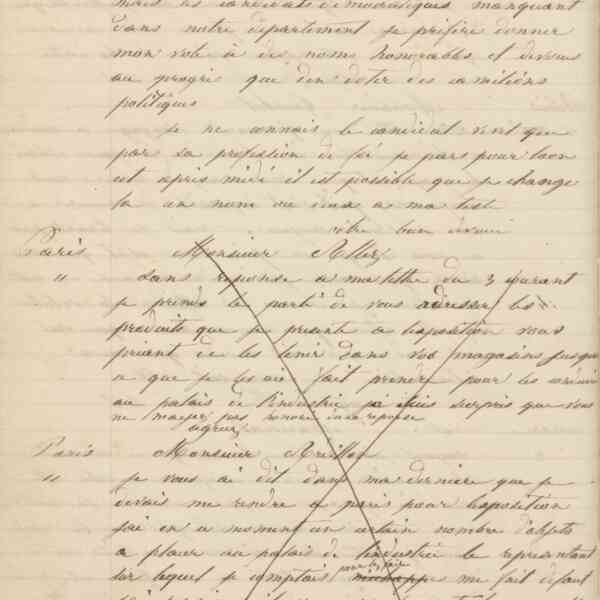 mais les candidats démocratiques manquant
dans notre département je préfère donner
mon vote à des noms honorables et dévoués
au progrès que d'en doter des
politiques
je ne connais le candidat que
par sa profession de foi je pars pour Caen
et après midi il est possible que je change
la un nom ou deux a ma liste
votre bien dévoué
Paris Monsieur
" dans reponse a ma lettre du 3 courant
je prends le parti de vous adresser les
produits que je presente a l'exposition vous
priant de les tenir dans vos magasins jusqua
a que je les ai fait prendre pour les
au palais de l'industrie je suis surpris que vous
ne mayez pas honoré dune reponse
agreez
Paris Monsieur
" je vous ai dit dans ma derniere que je
devais me rendre a paris pour lexposition
jai en a moment un certain nombre d'objets
a placer au palais de lindustrie le representant
sur lequel je comptais pour les faire me fait defaut